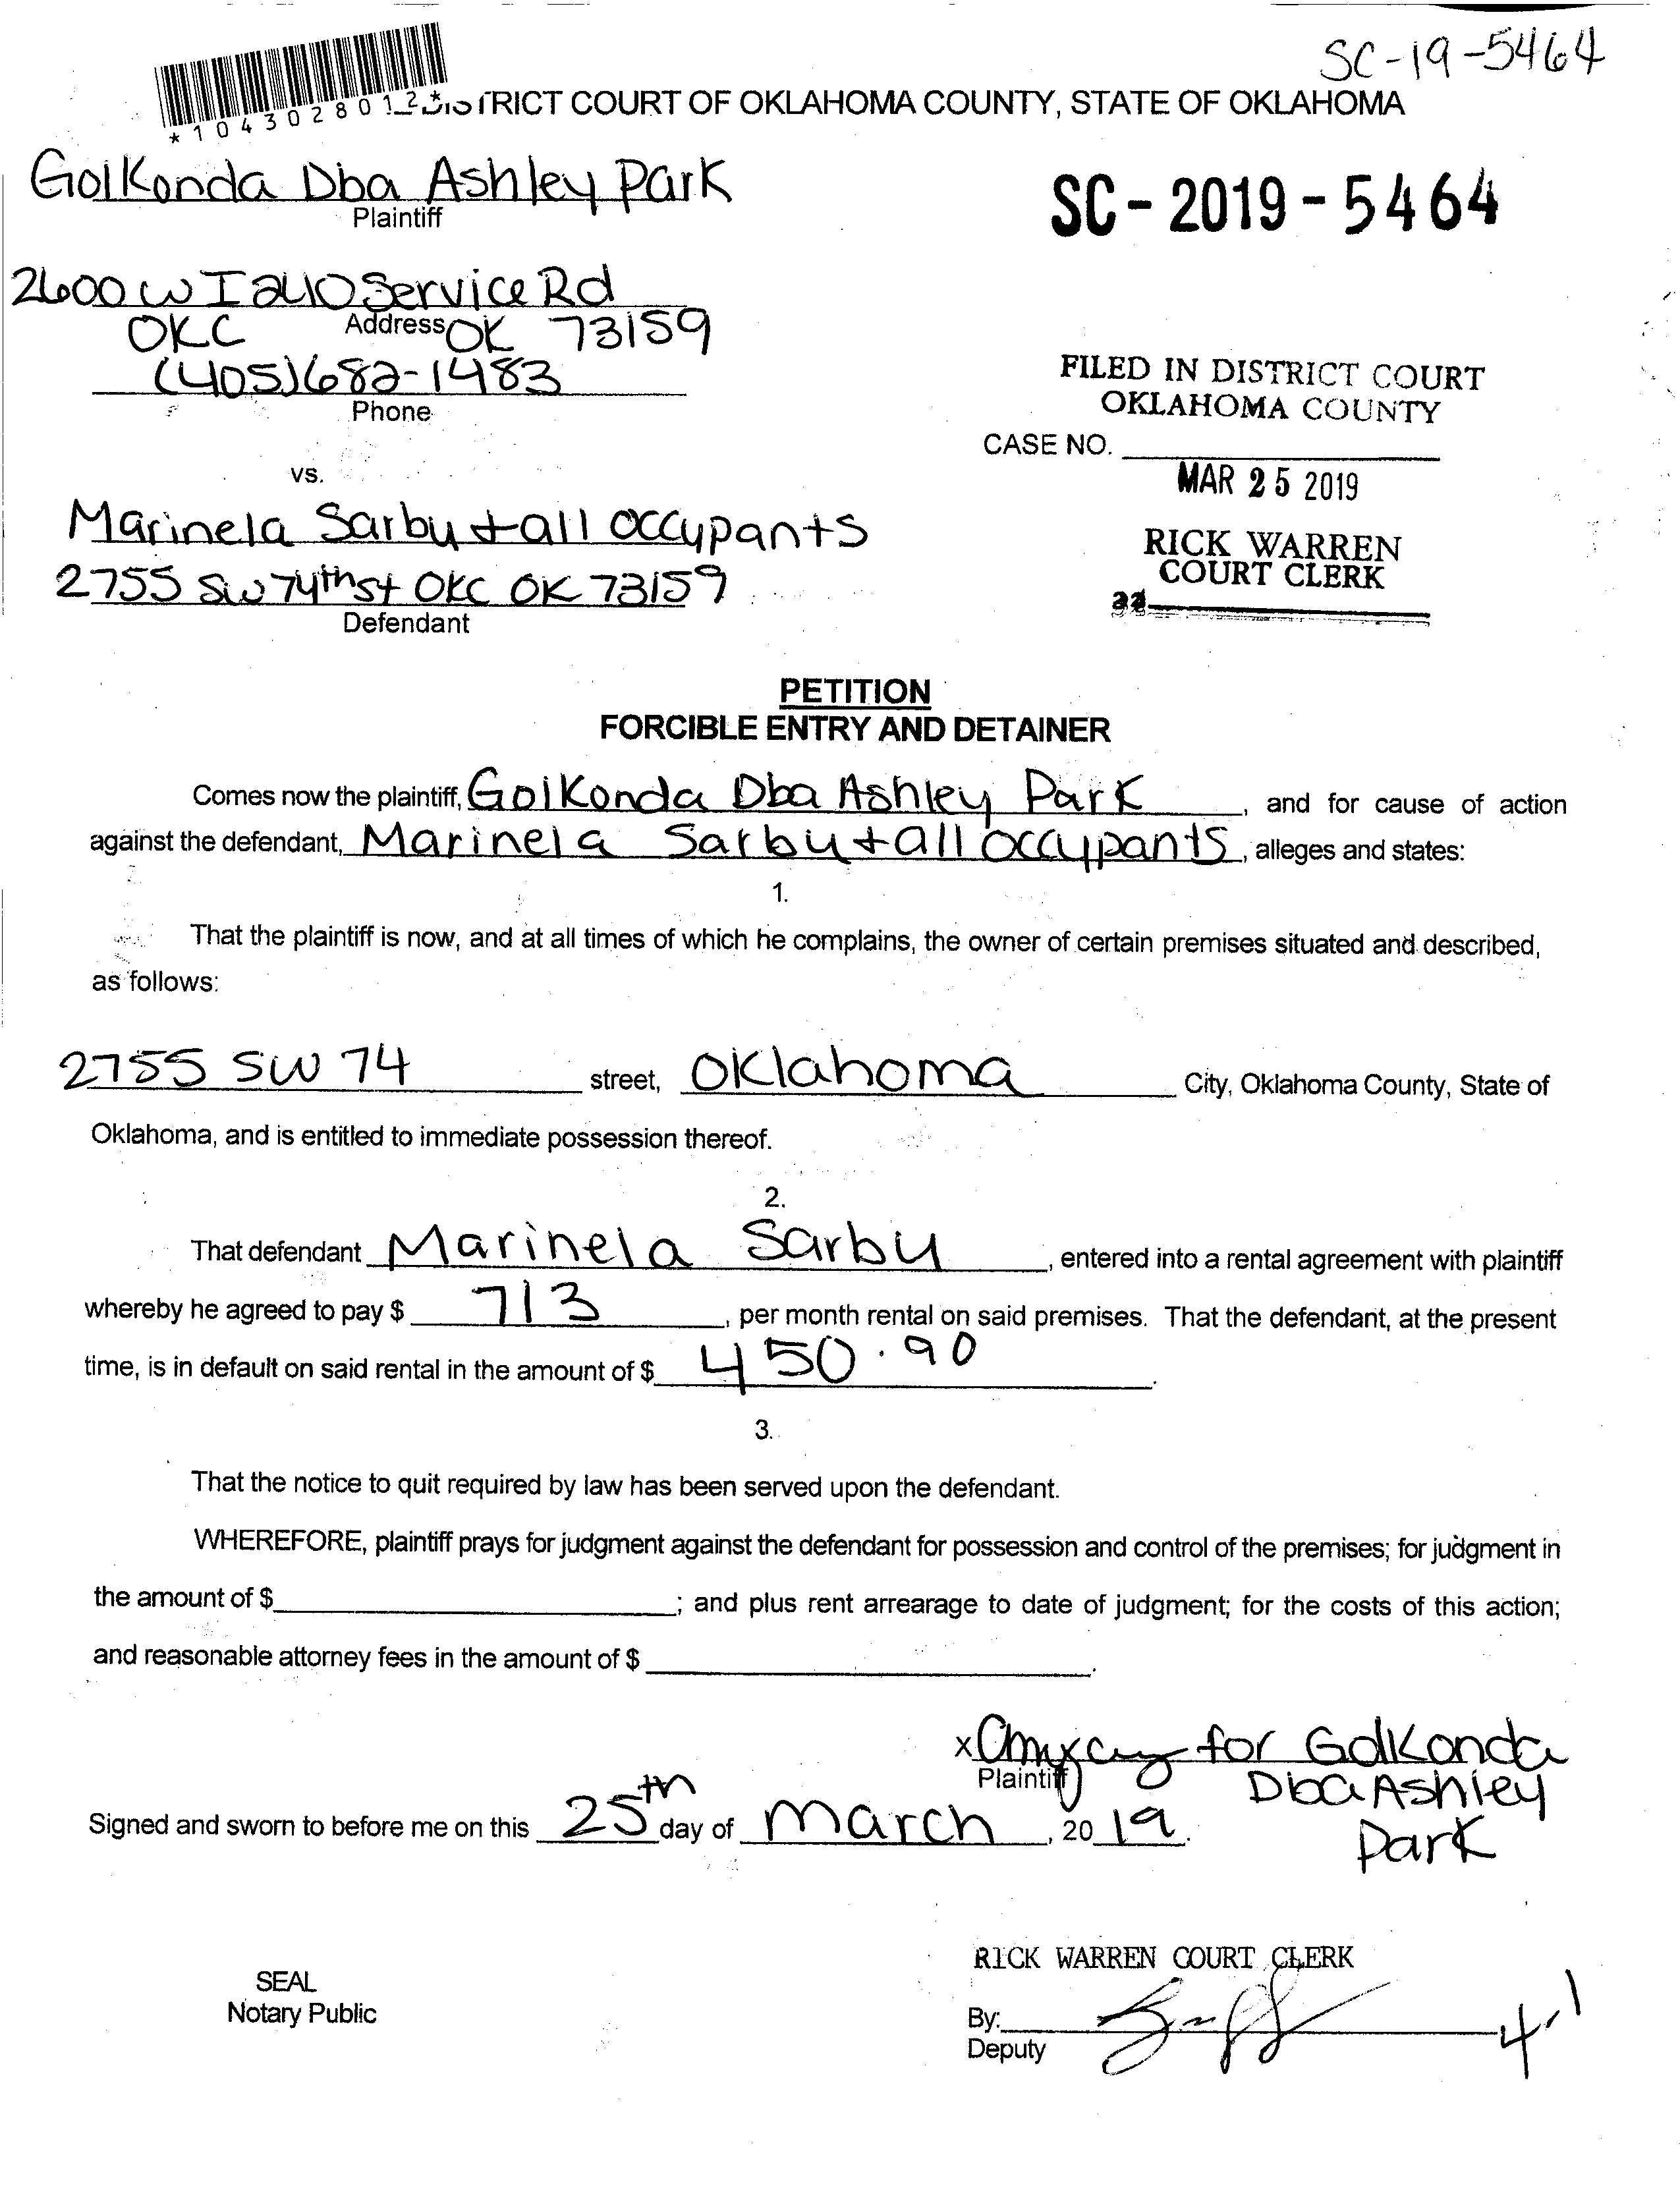 SC-19-5464
*1043028012*
DISTRICT COURT OF OKLAHOMA COUNTY, STATE OF OKLAHOMA
Golkonda Dba Ashley Park
Plaintiff
SC-2019-5464
2600 W I 240 Service Rd
Address
OKC OK 73159
(405)682-1483
Phone
FILED IN DISTRICT COURT
OKLAHOMA COUNTY
CASE NO.
vs.
MAR 25 2019
Marinela Sarbu + all occupants
RICK WARREN
COURT CLERK
2755 SW 74th St OKC OK 73159
Defendant
PETITION
FORCIBLE ENTRY AND DETAINER
Comes now the plaintiff, Golkonda Dba Ashley Park, and for cause of action
against the defendant, Marinela Sarbu + all occupants, alleges and states:
1.
That the plaintiff is now, and at all times of which he complains, the owner of certain premises situated and described,
as follows:
2755 SW 74 street, Oklahoma City, Oklahoma County, State of
Oklahoma, and is entitled to immediate possession thereof.
2.
That defendant Marinela Sarbu, entered into a rental agreement with plaintiff
whereby he agreed to pay $ 713, per month rental on said premises. That the defendant, at the present
time, is in default on said rental in the amount of $ 450.90.
3.
That the notice to quit required by law has been served upon the defendant.
WHEREFORE, plaintiff prays for judgment against the defendant for possession and control of the premises; for judgment in
the amount of $ ; and plus rent arrearage to date of judgment; for the costs of this action;
and reasonable attorney fees in the amount of $ .
x for Golkonda
Plaintiff
Dba Ashley
Park
Signed and sworn to before me on this 25th day of March, 2019.
RICK WARREN COURT CLERK
SEAL
Notary Public
By:
Deputy
4-1